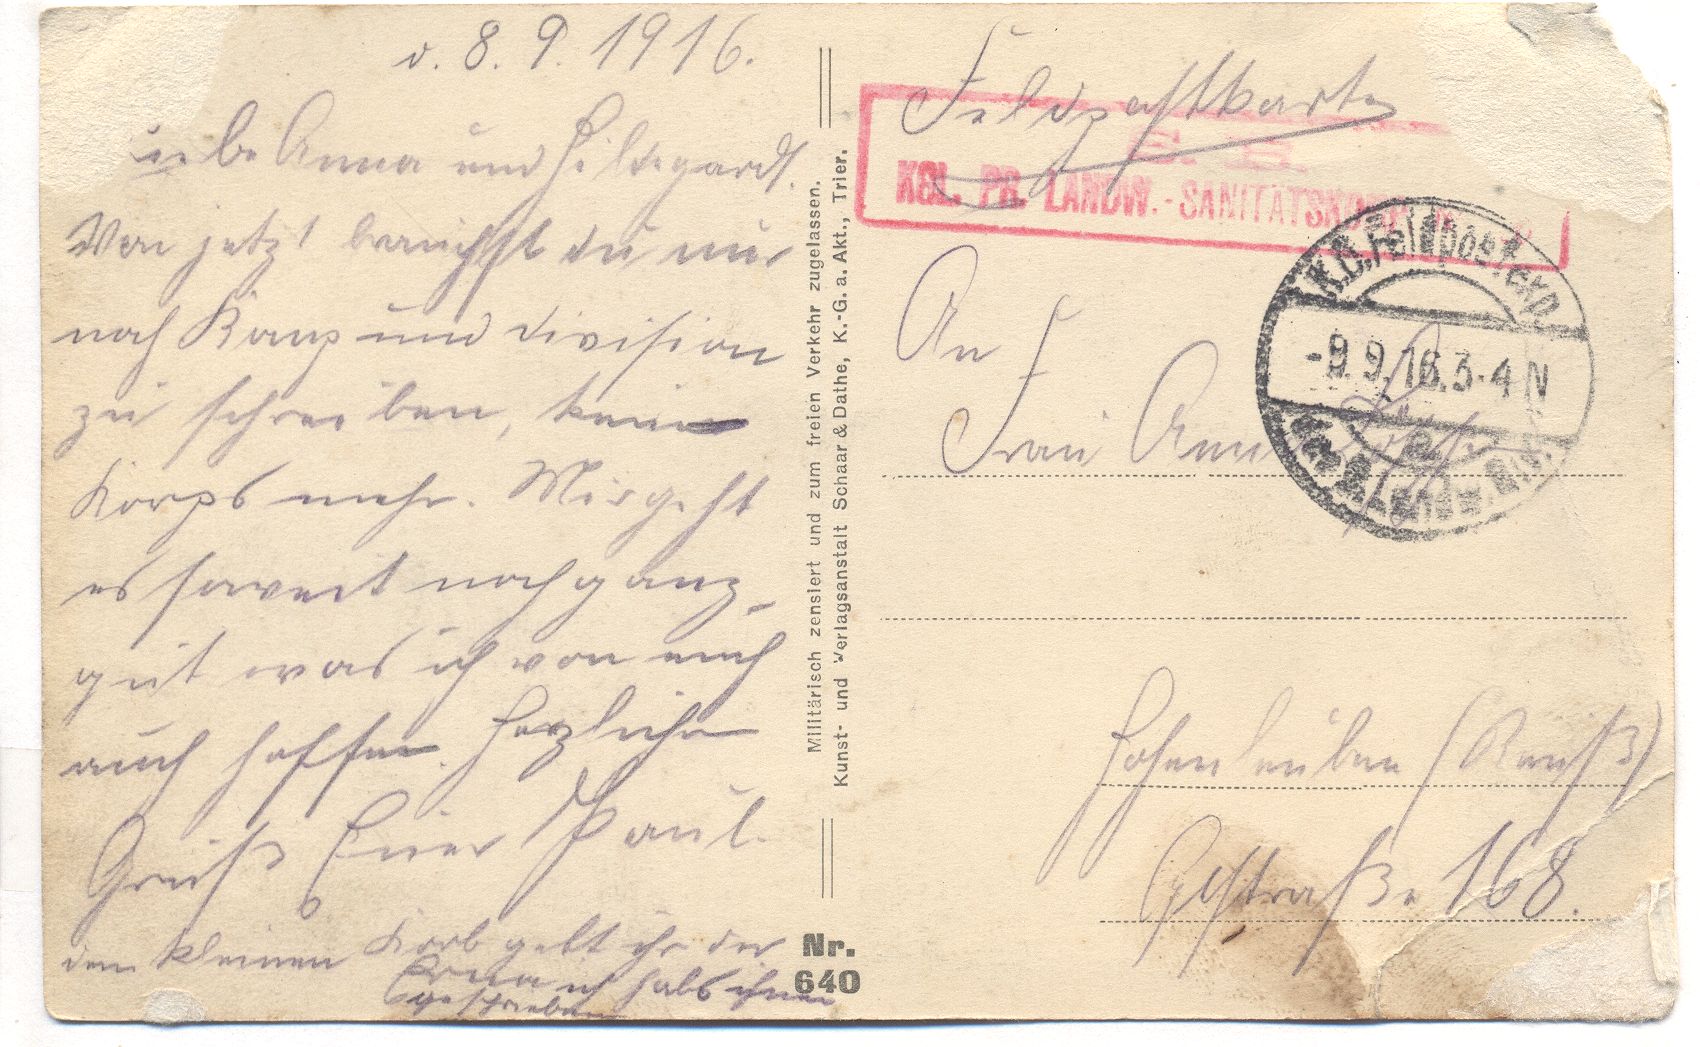 d. 8.9.1916.
Liebe Anna und Hildegardt.
Von jetzt brauchst du nur
noch Komp und Division
zu schreiben, kein
Korps mehr. Mir geht
es soweit noch ganz
gut was ich von euch
auch hoffe. Herzliche
Gruß Euer Paul.
dem kleinen Korb gebt ihr der
Erna ich habs ihnen
geschrieben
Militärisch zensiert und zum freien Verkehr zugelassen.
Kunst- und Verlagsanstalt Schaar & Dathe, K.-G. a. Akt., Trier.
Nr.
640
Feldpostkarte
S. B.
KGL. PR. LANDW.-SANITÄTSKOMP.
K.D. Feldpostexp.
-9.9.16.3-4N
a
der Landw. Div.
An
Frau Anna
Hohenleuben (Reuß)
168.